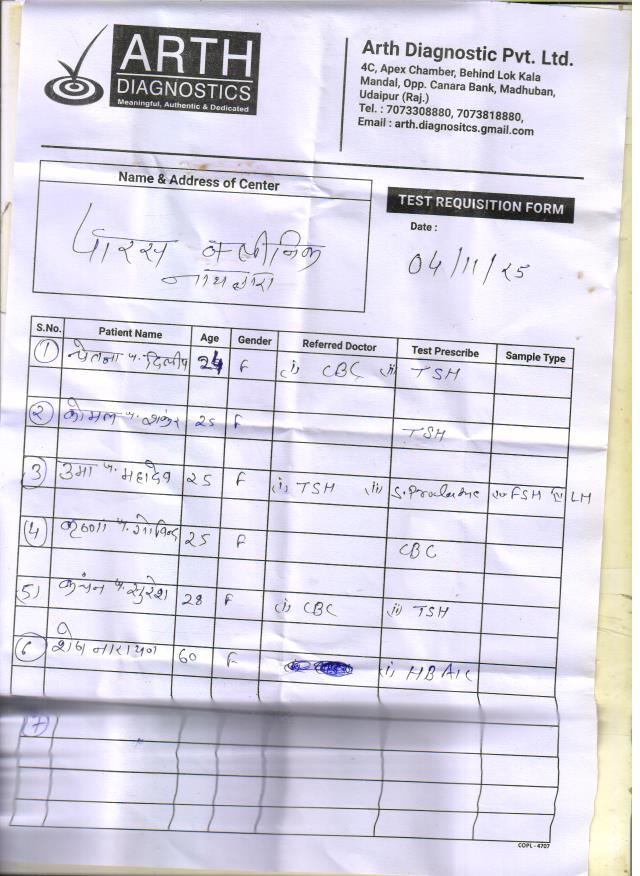 ARTH
DIAGNOSTICS
Meaningful, Authentic & Dedicated
Arth Diagnostic Pvt. Ltd.
4C, Apex Chamber, Behind Lok Kala
Mandal, Opp. Canara Bank, Madhuban,
Udaipur (Raj.)
Tel. : 7073308880, 7073818880,
Email : arth.diagnositcs.gmail.com
Name & Address of Center
पारस क्लीनिक
नाथद्वारा
TEST REQUISITION FORM
Date :
04/11/25
S.No. Patient Name Age Gender Referred Doctor Test Prescribe Sample Type
1 चेतना प. दिलीप 24 F (i) CBC (ii) TSH
2 कोमल प. शंकर 25 F TSH
3 उमा प. महादेव 25 F (i) TSH (ii) S. FSH LH
(4) कृष्णा प. गोविन्द 25 F CBC
(5) कंचन प. सुरेश 28 F (i) CBC (ii) TSH
6 शेष नारायण 60 F (i) HBA1C
(7)
COPL - 4707